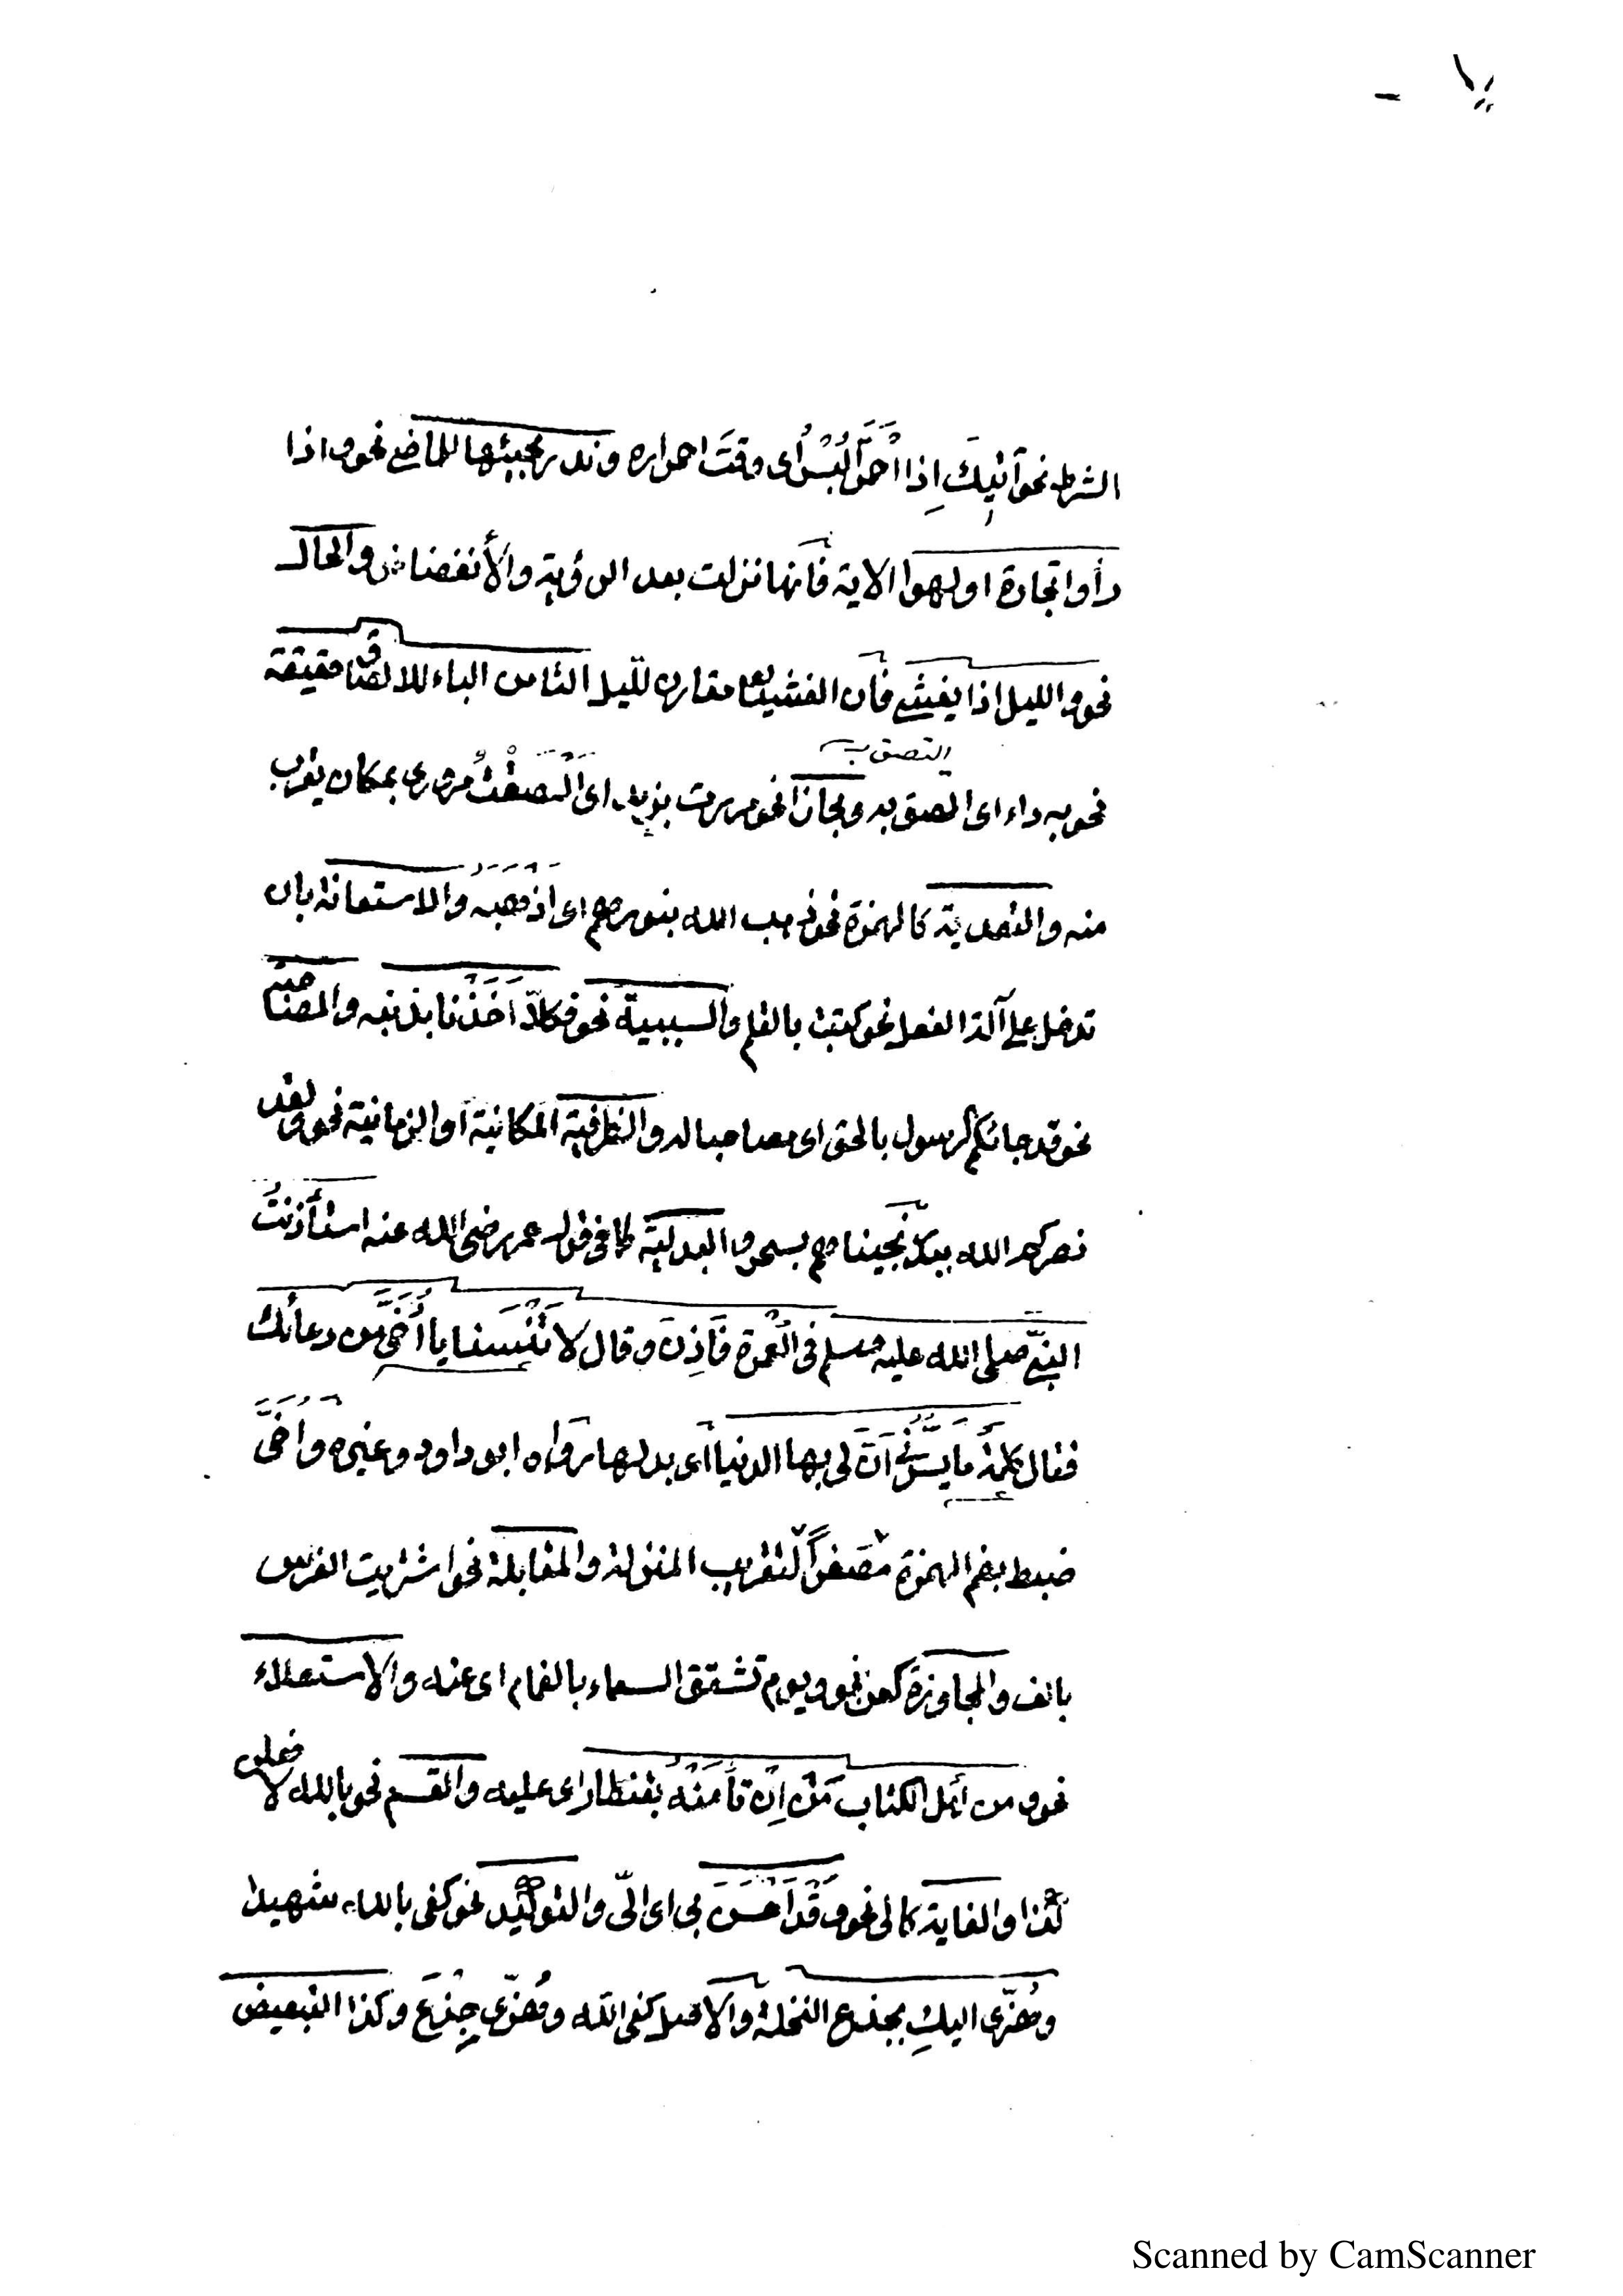 الشرط نحو آتيك اذا احمرّ البسر اى وقت احمراره وندر مجيئها للماضى نحو واذا
رأوا تجارة او لهوا الاية فانها نزلت بعد الرؤية والأنفضاض والحال
نحو والليل اذا يغشى فان الغشيان مقارن لليل الثامن الباء للالصاق حقيقة
نحو به داء اى الصق به ومجازا نحو مررت بزيد اى التصقْتُ مرورى بمكان يقرب
التصق به
منه والتعدية كالهمزة نحو ذهب الله بنورهم اى اذهبه والاستعانة بان
تدخل على آلة الفعل نحو كتبت بالقلم والسببية نحو فكلّا اَخَذْنا بذنبه والمصاحبة
نحو قد جائكم الرسول بالحق اى مصاحبا له والظرفية المكانية او الزمانية نحو ولقد
نصركم الله ببدر نجيناهم بسحر والبدلية كما فى قول عمر رضى الله عنه استأذنتُ
النبىّ صلى الله عليه وسلم فى العُمرة فَأَذِنَ وقال لا تَنْسَنا يا اُخَىَّ من دعائك
فقال كلمة ما يَسُرُّنى اَنّ لى بها الدنيا اى بدلها رواه ابو داود وغيره واُخَىَّ
ضبط بضم الهمزة مُصَغَّراً لتقريب المنزلة والمقابلة نحو اشتريت الفرس
بالف والمجاوزة كعن نحو ويوم تشقق السماء بالغمام اى عنه والاستعلاء
نحو ومن اهل الكتاب مَنْ اِنْ تَأْمَنْهُ بقنطار اى عليه والقسم نحو بالله لافعلن
كذا والغاية كالى نحو وقَدْ اَحْسَنَ بى اى الىّ والتوكيد نحو كفى بالله شهيدا
وهُزّى اليكِ بجذع النخلة والاصل كفى الله وهُزّى جِذْعَ وكذا التبعيض
Scanned by CamScanner